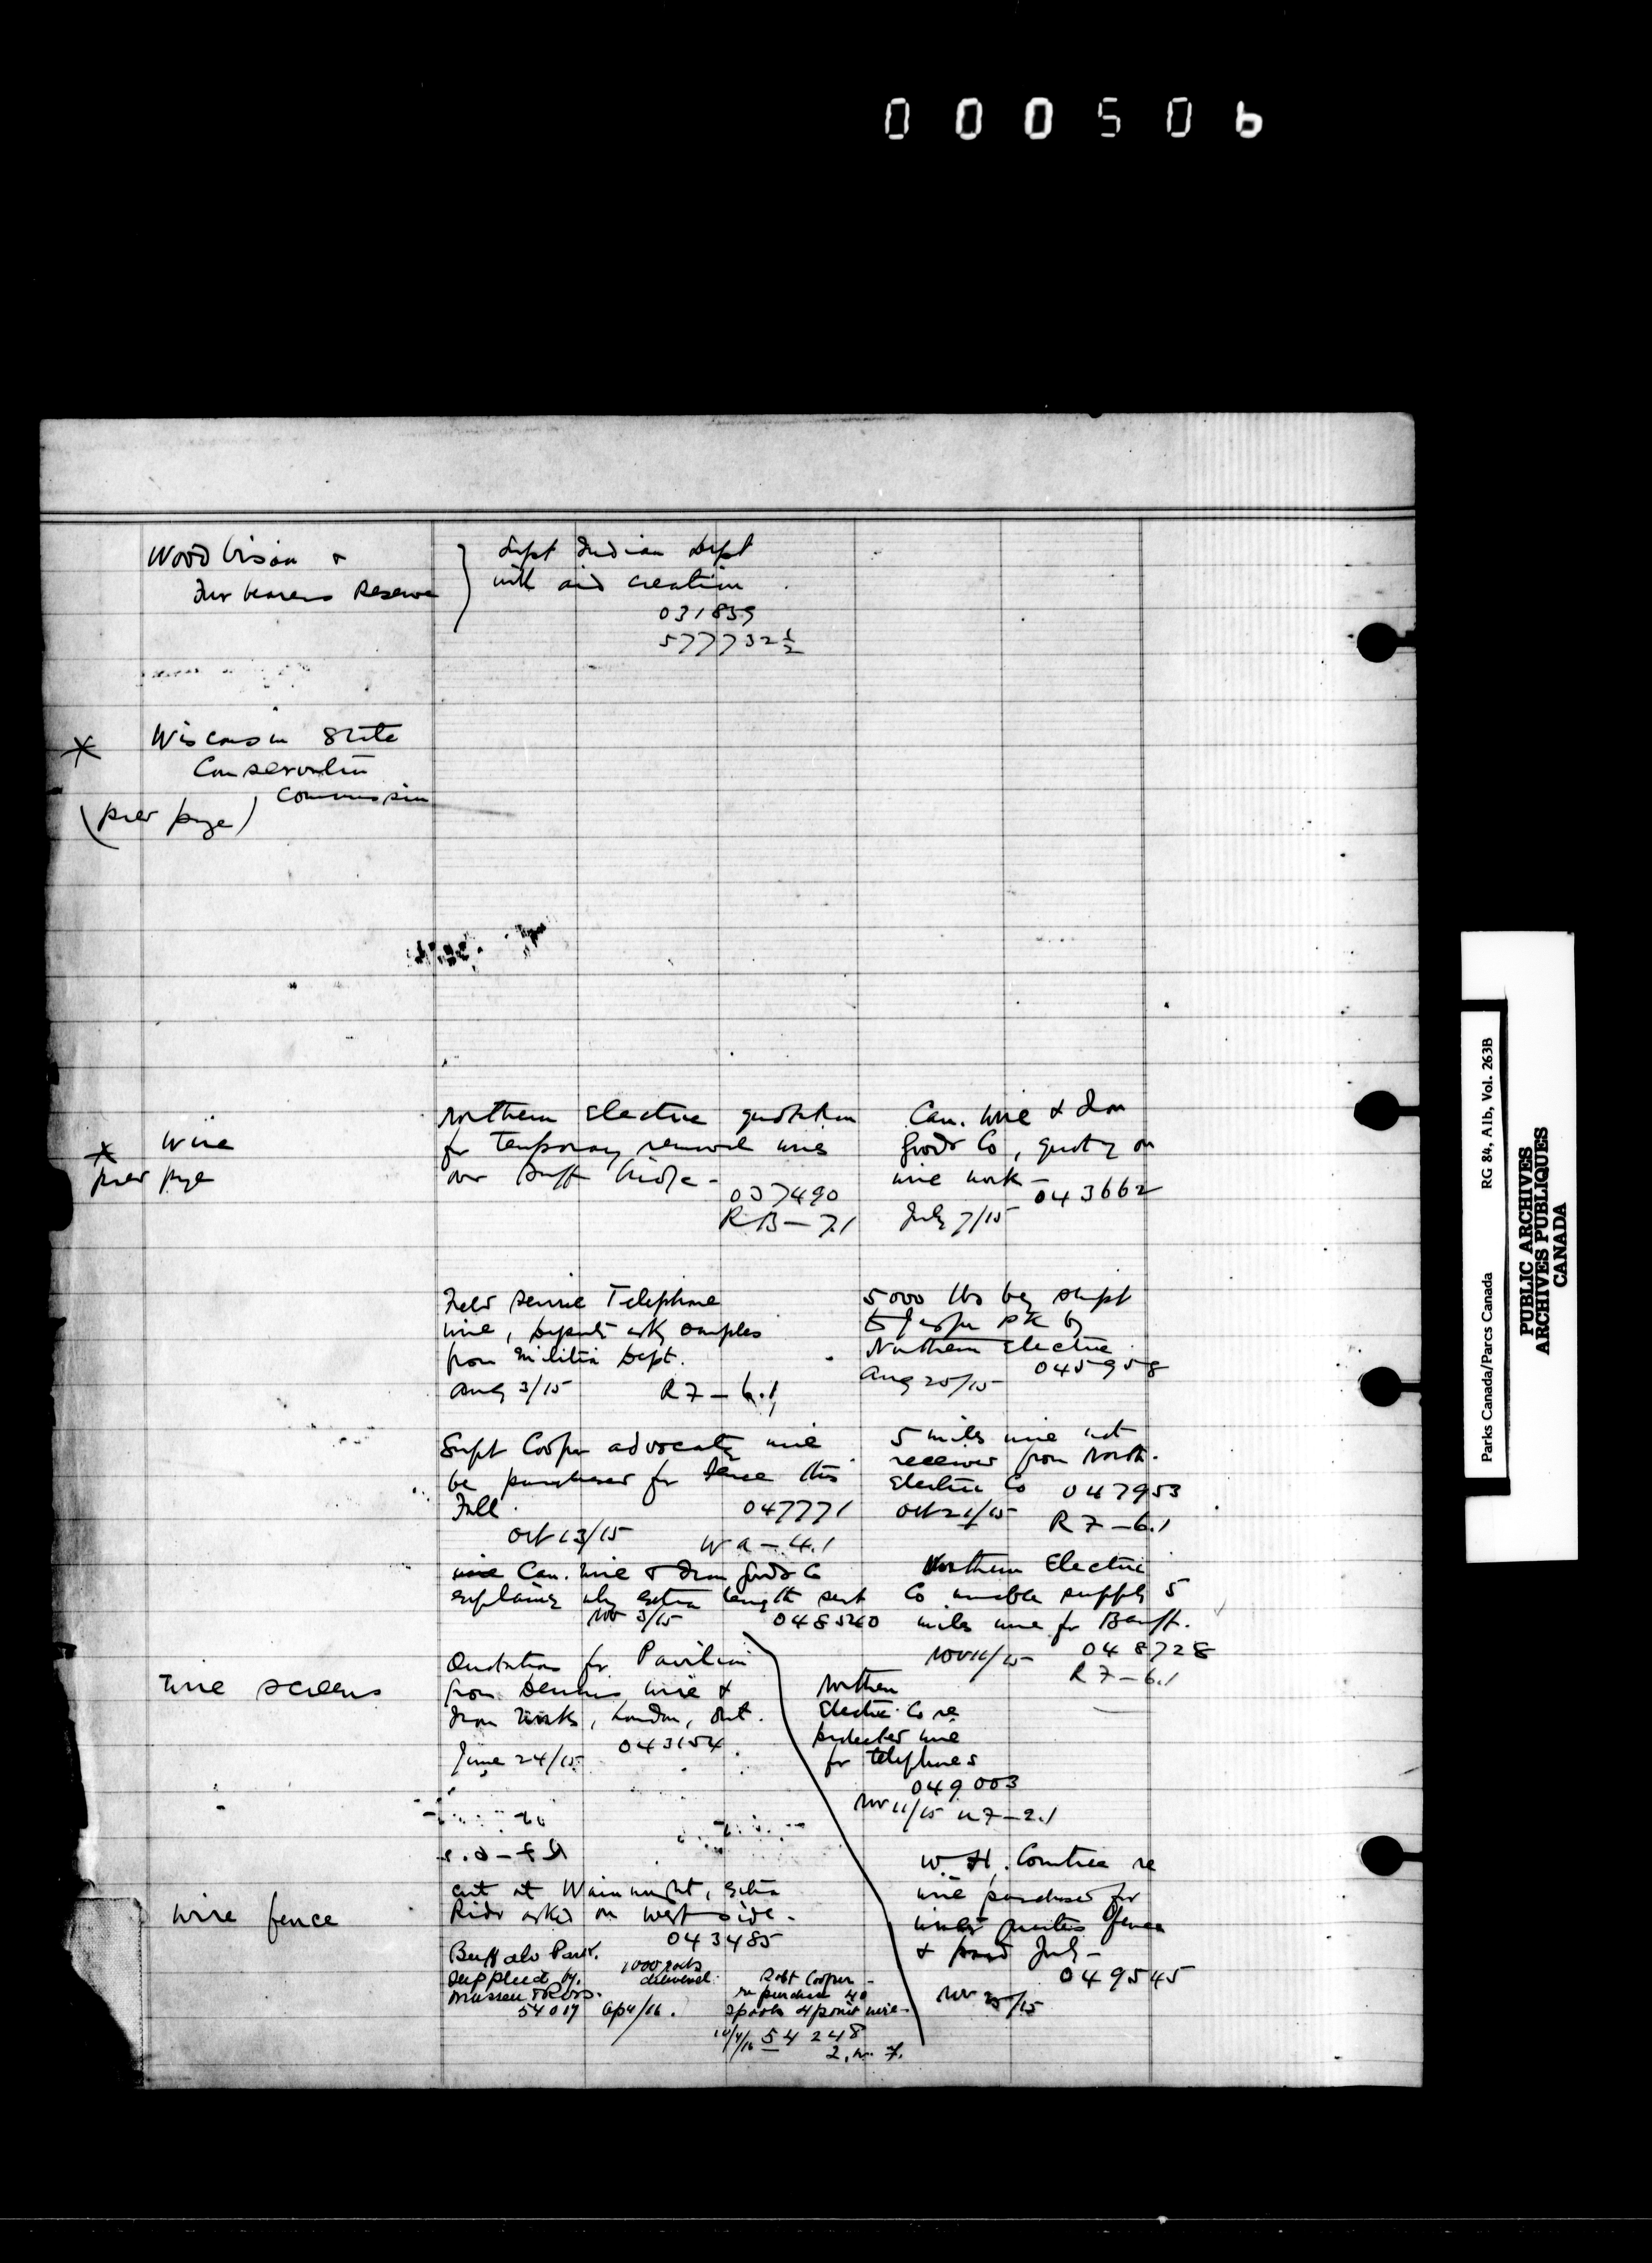 000506
Wood bison &
Fur bearers Reserve
Supt Indian Dept
will aid creation
031859
577732½
Wisconsin State
Conservation
Commission
(prev page)
Wire
prev page
Northern Electric quotation
for temporary removal wires
over Banff bridge -
037490
RB - 7.1
Can. Wire & Iron
Goods Co, quoting on
wire work -
043662
July 7/15
Field Service Telephone
wire, Deputy asks samples
from Militia Dept.
Aug 3/15 R7 - 6.1
5000 lbs being shipt
to Jasper Pk by
Northern Electric
Aug 25/15 045958
Supt Cooper advocates wire
be purchased for fence this
Fall 047771
Oct 13/15 Wa - 4.1
5 miles wire not
received from North.
Electric Co 047953
Oct 21/15 R7 - 6.1
Can. Wire & Iron Goods Co
explaining why extra length sent
Nov 3/15 048540
Northern Electric
Co unable supply 5
miles wire for Banff.
Nov 11/15 048728
R7 - 6.1
Wire screens
Quotations for Pavilion
from Dennis Wire &
Iron Works, London, Ont.
June 24/15 043154
Northern
Electric Co re
protected wire
for telephones
049003
Nov 11/15 U7 - 2.1
Wire fence
cut at Wainwright, extra
Rider asked on west side.
043485
Buffalo Park.
supplied by
Mussen & Ross.
54017
1000 rods
delivered.
Ap 4/16.
Robt Cooper -
re purchase 40
spools 4 point wire -
10/4/16 54248
2. W. 7.
W. H. Comtree re
wire purchased for
fence
& paid July -
049545
Nov 25/15
Parks Canada/Parcs Canada RG 84, A1b, Vol. 263B
PUBLIC ARCHIVES
ARCHIVES PUBLIQUES
CANADA